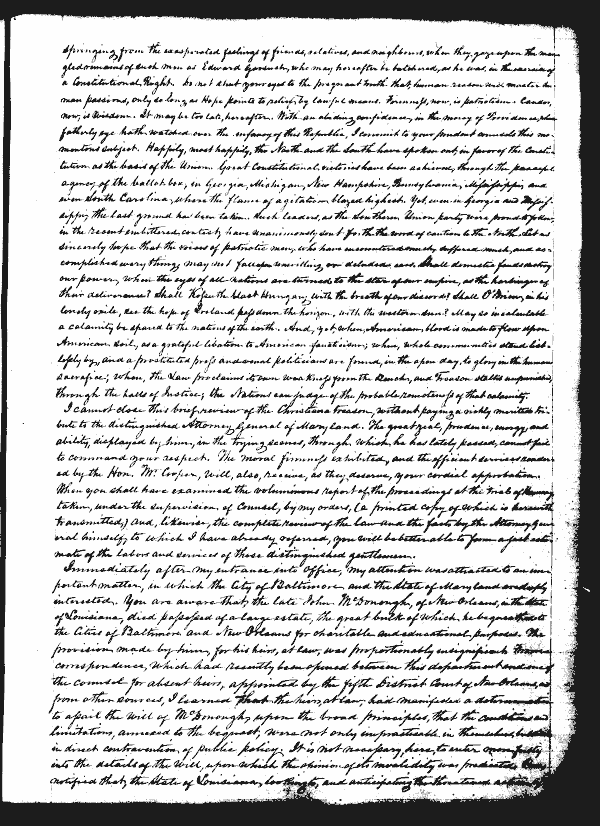 springing from the exasperated feelings of friends, relatives, and neighbours, when they gaze upon the man
gled remains of such men as Edward Gorsuch, who may hereafter be butchered, as he was, in the exercise of
a Constitutional Right. Do not shut your eyes to the pregnant truth that, human reason will master hu
man passions, only so long as Hope points to relief, by lawful means. Firmness, now, is patriotism. Candor,
now, is Wisdom. It may be too late, hereafter. With an abiding confidence, in the mercy of Providence, whose
fatherly eye hath watched over the infancy of this Republic, I commit to your prudent counsels this mo-
mentous subject. Happily, most happily, the North and the South have spoken out, in favor of the Consti-
tution as the basis of the Union. Great Constitutional victories have been achieved, through the peaceful
agency of the ballot box, in Georgia, Michigan, New Hampshire, Pennsylvania, Mississippi, and
even South Carolina, where the flame of agitation blazed highest. Yet, even in Georgia and Missis-
sippi, the last ground has been taken. Such leaders, as the Southern Union party were proud to follow,
in the recent embittered contest, have unanimously sent forth the word of caution to the North. Let us
sincerely hope that the voices of patriotic men, who have encountered much, suffered much, and ac-
complished every thing, may not fall upon unwilling, or deluded ears. Shall domestic feuds destroy
our power, when the eyes of all nations are turned to the star of our empire, as the harbinger of
their deliverance? Shall Kossuth blast Hungary with the breath of our discord? Shall O'Brien, in his
lonely exile, see the hope of Ireland pass down the horizon, with the western sun? May so incalculable
a calamity be spared to the nations of the earth. And, yet, when, American, blood is made to flow upon
American soil, as a grateful libation to American fanaticism; when, whole communities stand list-
lessly by, and a prostituted press and venal politicians are found, in the open day, to glory in the human
sacrifice; when, the Law proclaims its own weakness from the Bench, and Treason stalks unpunished,
through the halls of Justice; the Nations can judge of the probable remoteness of that calamity.
I cannot close this brief review of the Christiana treason, without paying a richly merited tri-
bute to the distinguished Attorney General of Maryland. The great zeal, prudence, energy, and
ability, displayed by him, in the trying scenes, through, which, he has lately passed, cannot fail
to command your respect. The moral firmness exhibited, and the efficient services render-
ed by the Hon. Mr. Cooper, will, also, receive, as they deserve, your cordial approbation.
When you shall have examined the voluminous report of the proceedings at the trial of Hanway
taken, under the supervision of Counsel, by my orders, (a printed copy of which is herewith
transmitted,) and, likewise, the complete review of the law and the facts by the Attorney Gen
eral himself, to which I have already referred, you will be better able to form a just esti-
mate of the labors and services of those distinguished gentlemen.
Immediately after my entrance into office, my attention was attracted to an im-
portant matter, in which the City of Baltimore and the State of Maryland are deeply
interested. You are aware that, the late John McDonogh, of New Orleans, in the State
of Louisiana, died possessed of a large estate, the great bulk of which, he bequeathed to
the Cities of Baltimore and New Orleans for charitable and educational purposes. The
provision made by him, for his heirs, at law, was proportionably insignificant. From a
correspondence, which had recently been opened between this department and one of
the counsel for absent heirs, appointed by the fifth District Court of New Orleans, as
from other sources, I learned that the heirs, at law, had manifested a determination
to assail the will of McDonogh, upon the broad principles, that the conditions and
limitations, annexed to the bequest, were not only impracticable in themselves, but
in direct contravention of public policy. It is not necessary, here, to enter more fully
into the details of the Will, upon which the opinion of its invalidity was predicated. Being
notified that, the State of Louisiana, looking to, and anticipating the threatened